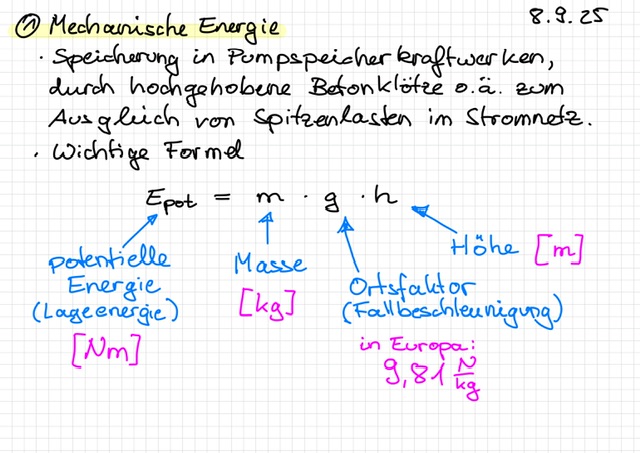 ① Mechanische Energie
8.9.25
· Speicherung in Pumpspeicherkraftwerken,
durch hochgehobene Betonklötze o.ä. zum
Ausgleich von Spitzenlasten im Stromnetz.
· Wichtige Formel
Epot = m · g · h
potentielle
Energie
(Lageenergie)
[Nm]
Masse
[kg]
Ortsfaktor
(Fallbeschleunigung)
in Europa:
9,81 N/kg
Höhe [m]